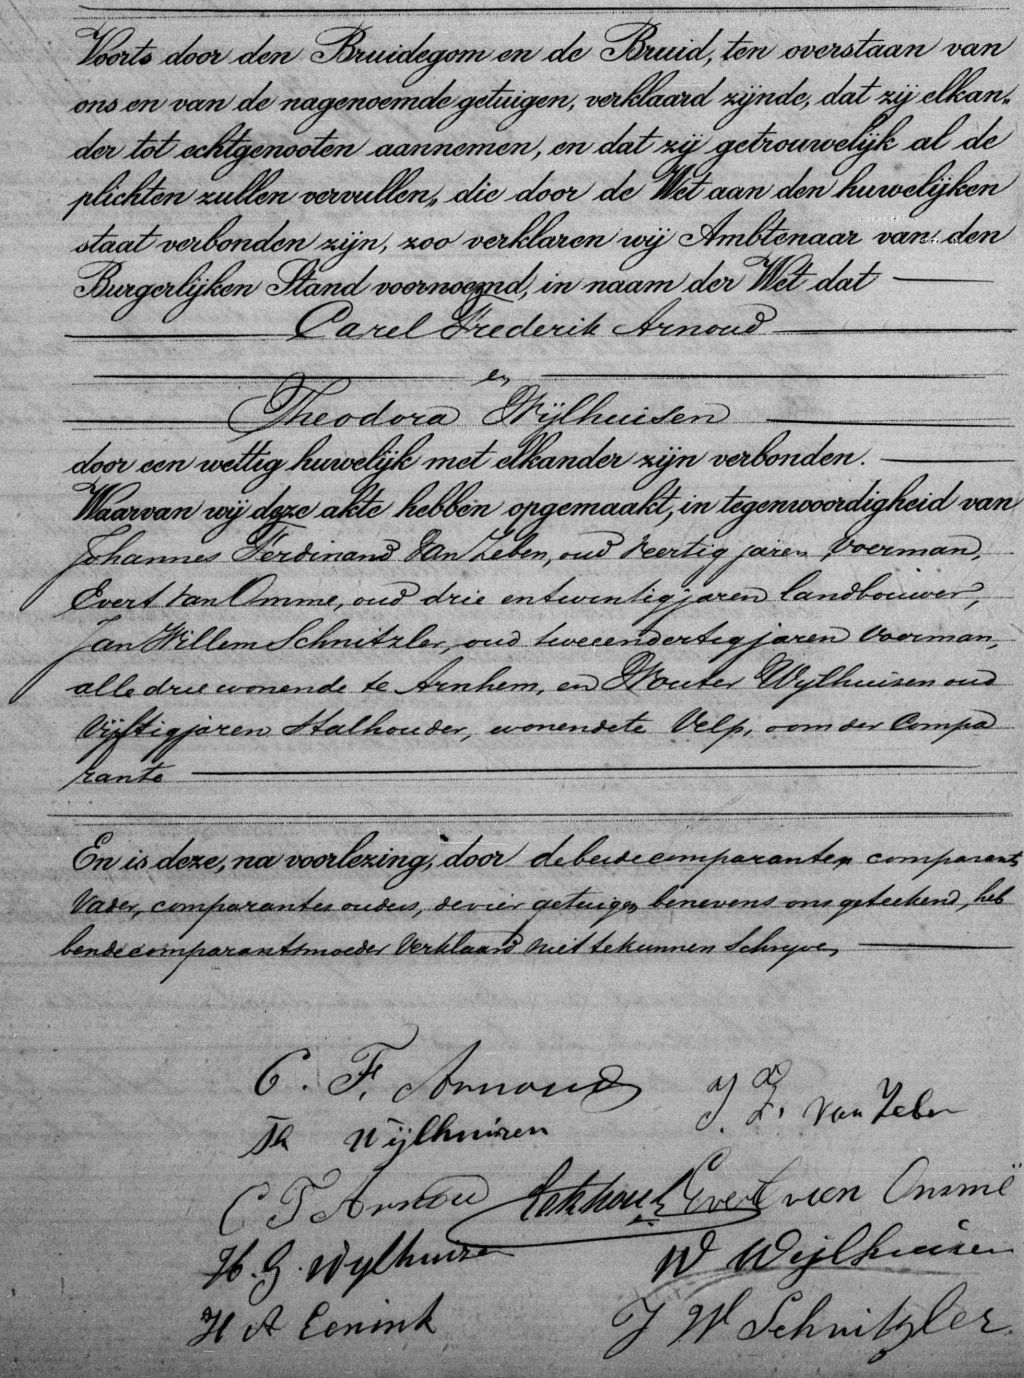 Voorts door den Bruidegom en de Bruid, ten overstaan van
ons en van de nagenoemde getuigen, verklaard zijnde, dat zij elkan-
der tot echtgenooten aannemen, en dat zij getrouwelijk al de
plichten zullen vervullen, die door de Wet aan den huwelijken
staat verbonden zijn, zoo verklaren wij Ambtenaar van den
Burgerlijken Stand voornoemd, in naam der Wet dat
Carel Frederik Arnoud
en
Theodora Wijlhuisen
door een wettig huwelijk met elkander zijn verbonden.
Waarvan wij deze akte hebben opgemaakt, in tegenwoordigheid van
Johannes Ferdinand van Zeben, oud veertig jaren, voerman,
Evert van Omme, oud drie entwintig jaren landbouwer,
Jan Willem Schnitzler, oud tweeendertig jaren voerman,
alle drie wonende te Arnhem, en Wouter Wijlhuisen oud
vijftig jaren Stalhouder, wonende te Velp, oom der Compa
rante
En is deze, na voorlezing, door de beide comparanten, comparants
vader, comparantes ouders, de vier getuigen benevens ons geteekend, heb
bende comparants moeder verklaard niet te kunnen Schrijven
C. F. Arnoud
Th Wijlhuizen
J. F. van Zeben
C F Arnoud
Evert van Ommé
H. G. Wylhuizen
W Weijlhuisen
H A Eenink
J W Schnitzler